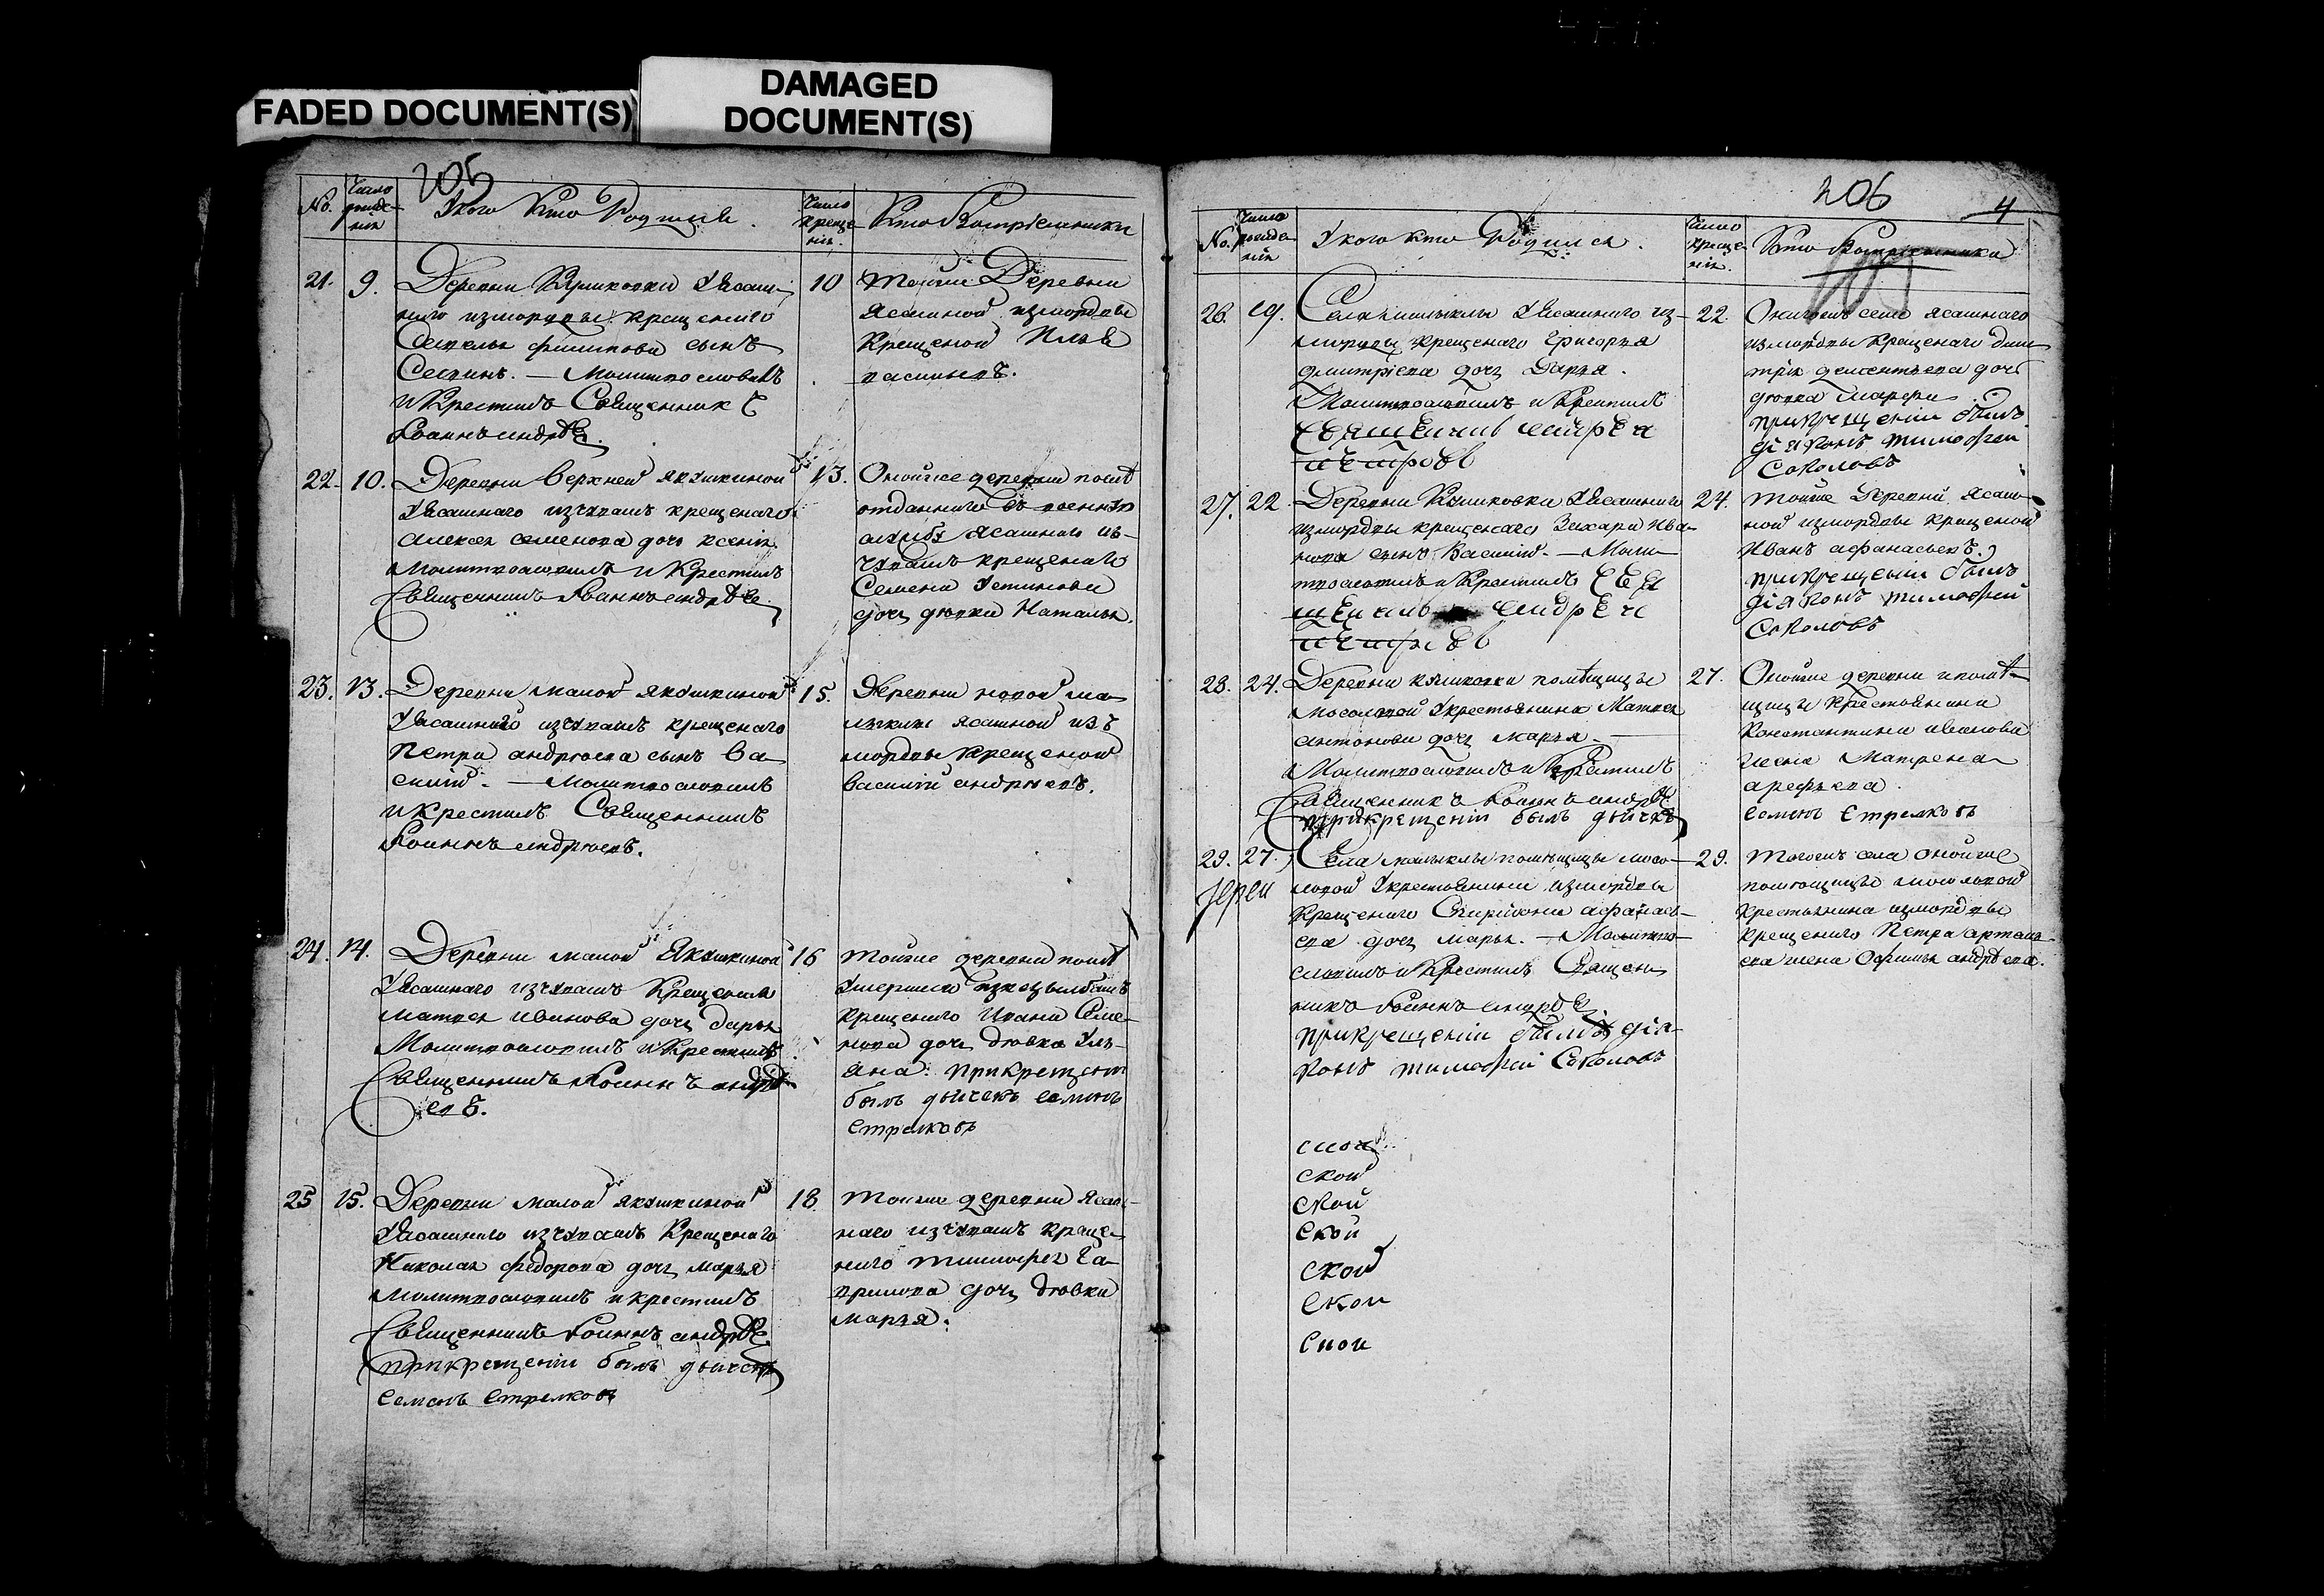 FADED DOCUMENT(S)
DAMAGED
DOCUMENT(S)
205
No.
Число
рожде-
нія
У кого Кто Родился.
Число
креще
нія.
Кто Воспріемники
21. 9.
Деревни Кушиковки Уясаш-
ного измордвы крещенаго
Савелья филипова сынъ
Молитвословилъ
и Крестилъ Священникъ
Иоаннъ андрѣе
10
Тойже Деревни
Ясашной измордвы
Крещеной Илья
васильевъ.
22. 10.
Деревни Верхней якушкиной
Уясашнаго изчувашъ крещенаго
Алексея семенова дочь ксенія
Молитвословилъ и Крестилъ
Священникъ Иоаннъ андрѣе
13.
Онойже деревни
отданнаго въ военную
службу Ясашнаго из-
чувашъ крещенаго
Семена Устинова
дочь девка Наталья.
23. 13.
Деревни малой якушкиной
Уясашного изчувашъ крещенаго
Петра андреева сынъ Ва-
силій. — Молитвословилъ
и крестилъ Священникъ
Иоаннъ андреевъ.
15.
Деревни новой ма-
лыклы ясашной изъ
мордвы крещеной
василій андреевъ.
24. 14.
Деревни малой Якушкиной
Уясашнаго изчувашъ Крещенаго
матвея иванова дочь дарья
Молитвословилъ и Крестилъ
Священникъ Иоаннъ андрѣ
евъ.
16
Тойже деревни
умершаго
крещенаго Ивана Семе-
нова дочь девка Уль-
яна: прикрещеніи
былъ дьячекъ семенъ
стрелковъ
25 15.
Деревни малой якушкиной
Уясашного изчувашъ Крещенаго
Николая федорова дочь марья
Молитвословилъ и крестилъ
Священникъ Иоаннъ андрѣе
прикрещеніи былъ дьячекъ
семенъ стрелковъ
18.
Тойже деревни Ясаш-
наго изчувашъ креще-
наго тимофея Га-
врилова дочь девка
марья.
206
4
No.
Число
рожде
нія
У кого кто Родился.
Число
креще
нія.
Кто Воспріемники
26. 19.
Села малыклы Уясашнаго из-
мордвы крещенаго Григорья
дмитріева дочь Дарья.
Молитвословилъ и Крестилъ
священникъ андреи
петровъ
22.
Онагожъ села ясашнаго
измордвы крещенаго дми
трія дементьева дочь
девка
прикрещеніи былъ
діяконъ тимофеи
Соколовъ
27. 22.
Деревни Кушиковки Уясашнаго
измордвы крещенаго Захара Ива-
нова сынъ Василій. — Моли-
твословилъ и Крестилъ свя
щенникъ андреи
петровъ
24.
Тойже Деревни ясаш-
ной измордвы крещеной
Иванъ афанасьевъ.
прикрещеніи былъ
діяконъ тимофеи
Соколовъ
28. 24.
Деревни кушиковки помѣщицы
Мосоловой Укрестьянина Матвея
антонова дочь марья —
Молитвословилъ и Крестилъ
Священникъ Иоаннъ андрѣе
прикрещеніи былъ дьячекъ
27.
Онойже деревни и помѣ-
щицы крестьянина
Константина иванова
жена Матрена
арефьева.
семенъ стрелковъ
29. 27.
Села малыклы помѣщицы мосо-
ловой Укрестьянина измордвы
крещенаго Спиридона афанась-
ева дочь марья. — Молитво-
словилъ и Крестилъ Священ-
никъ Иоаннъ андрѣе
прикрещеніи былъ діа-
конъ тимофеи Соколовъ
Іереи
29.
Тогожъ села онойже
помѣщицы мосоловой
крестьянина измордвы
крещенаго Петра артемь-
ева жена Офимья андрѣева.
скои
скои
скои
скои
скои
скои